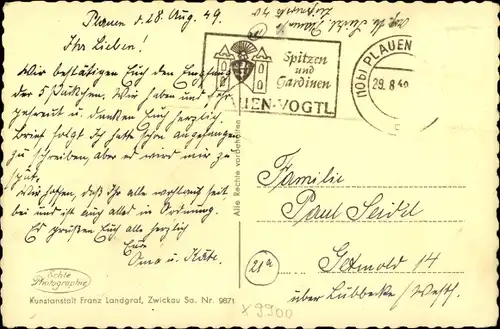 Plauen d. 28. Aug. 49.
Ihr Lieben!
Wir bestätigen Euch den Empfang
der 5 Päckchen. Wir haben uns sehr
gefreut u. danken Euch herzlich.
Brief folgt. Ich hatte schon angefangen
zu schreiben, aber es wird mir zu
spät.
Wir hoffen, daß Ihr alle wohlauf seit
bei uns ist auch alles in Ordnung.
Es grüßen Euch alle herzlich
Eure
Oma u. Käte.
Echte
Photographie
Kunstanstalt Franz Landgraf, Zwickau Sa. Nr. 9871
Alle Rechte vorbehalten
Spitzen
und
Gardinen
PLAUEN-VOGTL
(10b) PLAUEN
29. 8. 49
Familie
Paul Seidel
21a
Getmold 14
über Lübbecke / Westf.
x 9900